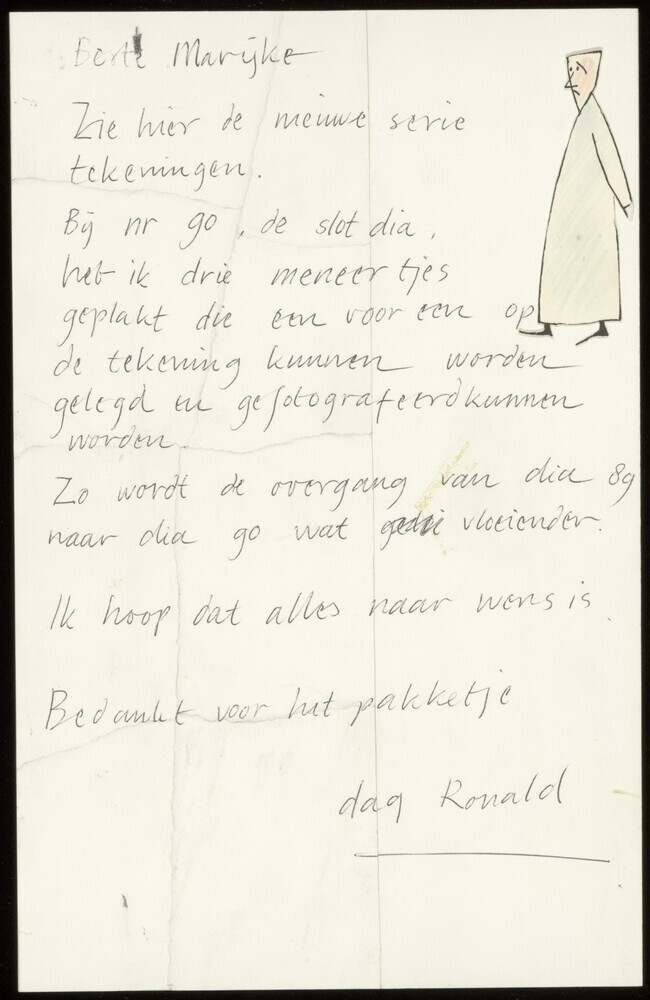 Beste Marijke
Zie hier de nieuwe serie
tekeningen.
Bij nr 90, de slot dia,
heb ik drie meneertjes
geplakt die een voor een op
de tekening kunnen worden
gelegd en gefotografeerd kunnen
worden.
Zo wordt de overgang van dia 89
naar dia 90 wat vloeiender.
Ik hoop dat alles naar wens is.
Bedankt voor het pakketje
dag Ronald